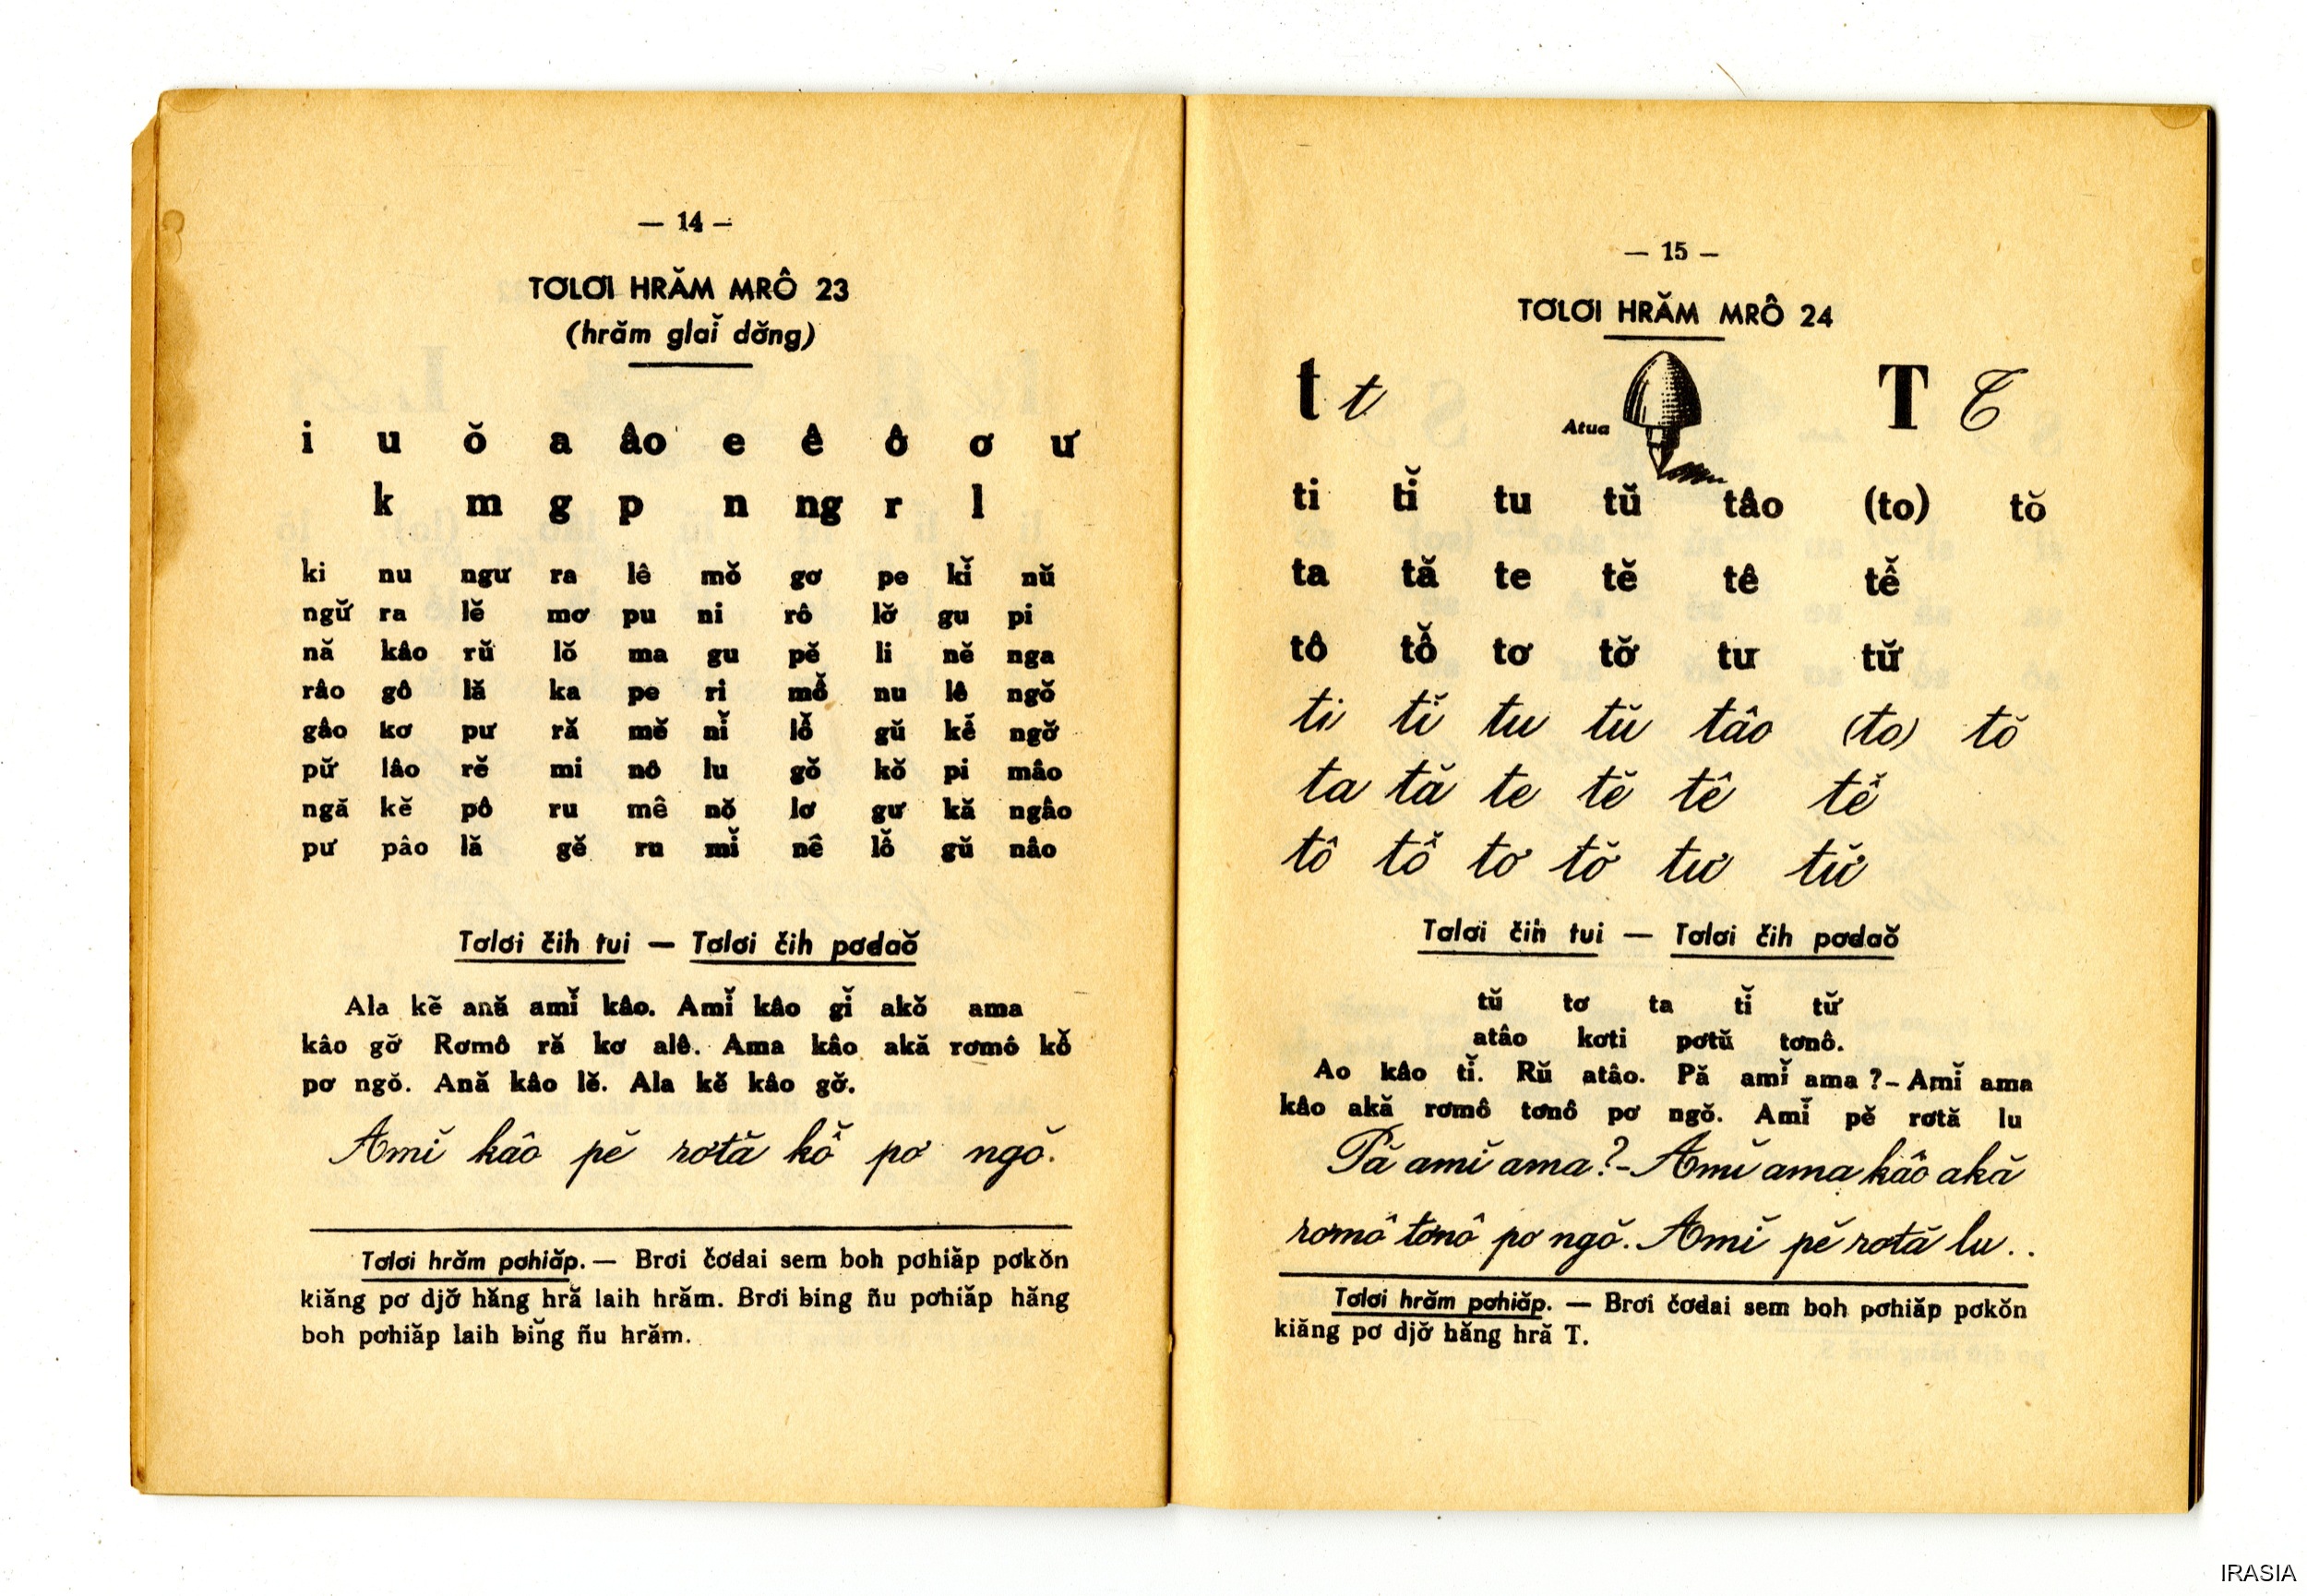 — 14 —
TƠLƠI HRĂM MRÔ 23
(hrăm glaĭ dơ̆ng)
i u ŏ a âo e ê ô ơ ư
k m g p n ng r l
ki nu ngư ra lê mŏ gơ pe kĭ nŭ
ngư̆ ra lĕ mơ pu ni rô lơ̆ gu pi
nă kâo rŭ lŏ ma gu pĕ li nĕ nga
râo gô lă ka pe ri mô̆ nu lê ngŏ
gâo kơ pư ră mĕ nĭ lô̆ gŭ kê̆ ngơ̆
pư̆ lâo rĕ mi nô lu gŏ kŏ pi mâo
ngă kĕ pô ru mê nŏ lơ gư kă ngâo
pư pâo lă gĕ ru mĭ nê lô̆ gŭ nâo
Tơlơi čih tui — Tơlơi čih pơdaŏ
Ala kĕ ană amĭ kâo. Amĭ kâo gĭ akŏ ama
kâo gơ̆ Rơmô ră kơ alê. Ama kâo akă rơmô kô̆
pơ ngŏ. Ană kâo lĕ. Ala kĕ kâo gơ̆.
Amĭ kâo pĕ rơtă kô̆ pơ ngŏ.
Tơlơi hrăm pơhiăp. — Brơi čơdai sem boh pơhiăp pơkŏn
kiăng pơ djơ̆ hăng hră laih hrăm. Brơi bing ñu pơhiăp hăng
boh pơhiăp laih bĭng ñu hrăm.
— 15 —
TƠLƠI HRĂM MRÔ 24
t t T T
Atua
ti tĭ tu tŭ tâo (to) tŏ
ta tă te tĕ tê tê̆
tô tô̆ tơ tơ̆ tư tư̆
ti tĭ tu tŭ tâo (to) tŏ
ta tă te tĕ tê tê̆
tô tô̆ tơ tơ̆ tư tư̆
Tơlơi čih tui — Tơlơi čih pơdaŏ
tŭ tơ ta tĭ tư̆
atâo kơti pơtŭ tơnô.
Ao kâo tĭ. Rŭ atâo. Pă amĭ ama ? — Amĭ ama
kâo akă rơmô tơnô pơ ngŏ. Amĭ pĕ rơtă lu
Pă amĭ ama ? — Amĭ ama kâo akă
rơmô tơnô pơ ngŏ. Amĭ pĕ rơtă lu..
Tơlơi hrăm pơhiăp. — Brơi čơdai sem boh pơhiăp pơkŏn
kiăng pơ djơ̆ hăng hră T.
IRASIA